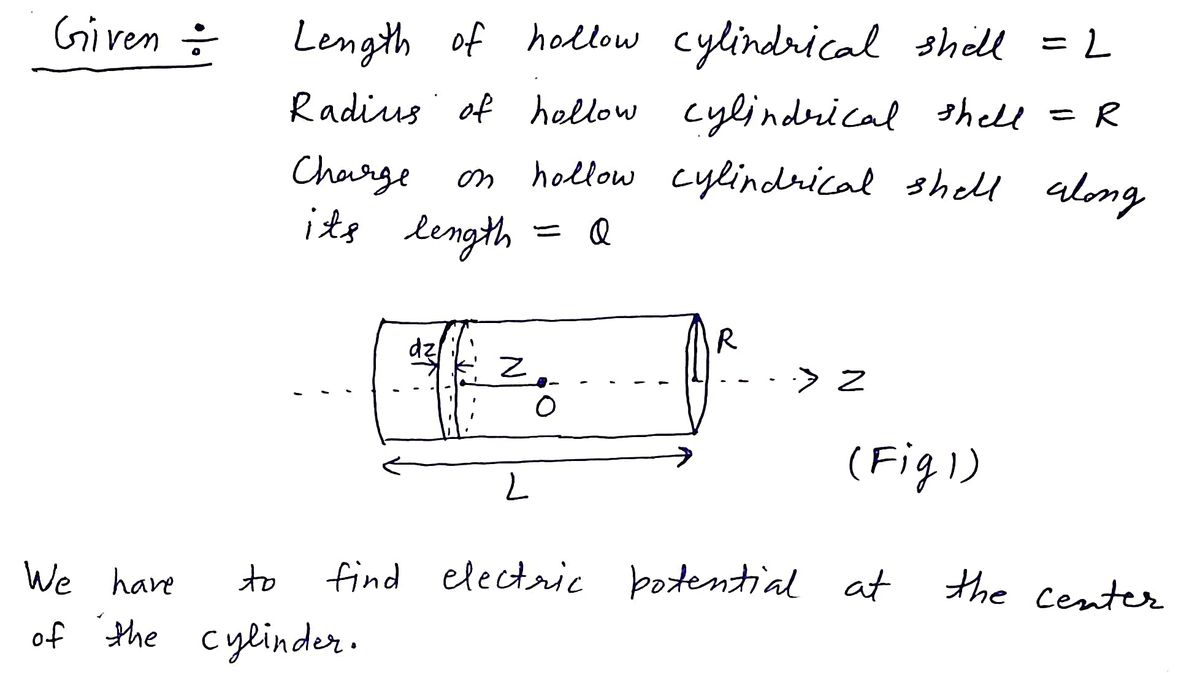 Given ÷ Length of hollow cylindrical shell = L
Radius of hollow cylindrical shell = R
Charge on hollow cylindrical shell along
its length = Q
dz
Z
O
R
Z
L
(Fig 1)
We have to find electric potential at the center
of the cylinder.